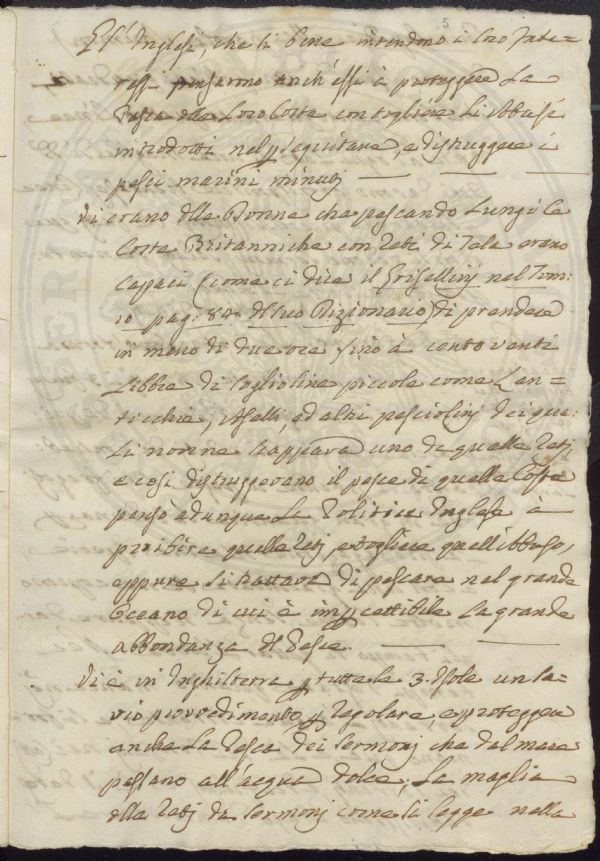 5
Gl'Inglesi, che li bene intendono i loro Inte=
ressi pensarono anch'essi à proteggere La
Pesca delle Loro Coste con togliere Li Abusi
introdotti nel pseguitare, e distruggere i
pesci marini minutj
Vi erano dlle Donne che pescando Lungi le
Coste Britanniche con Retj di Tela erano
Capaci (come ci dice il Grisellinj nel Tom:
10 pag: 84. del suo Dizionario) di prendere
in meno di due ore fino à cento venti
Libbre di Soglioline piccole come Len=
ticchie, Aselli, ed altri pesciolinj dei qua:
Li nonne scappava uno da quelle Retj
e così distruggevano il pesce di quelle Coste
pensò adunque La Politica Inglese à
proibire quelle Retj, e togliere quell'Abbuso,
eppure si trattava di pescare nel grande
Oceano di cui è impcettibile la grande
abbondanza del Pesce.
Vi è in Inghilterra p tutte le 3. Isole un sa=
vio provvedimento p regolare, e proteggere
anche La Pesca dei Sermonj che dal mare
passano all'acqua dolce; La maglia
dlla Retj da Sermonj come si legge nella